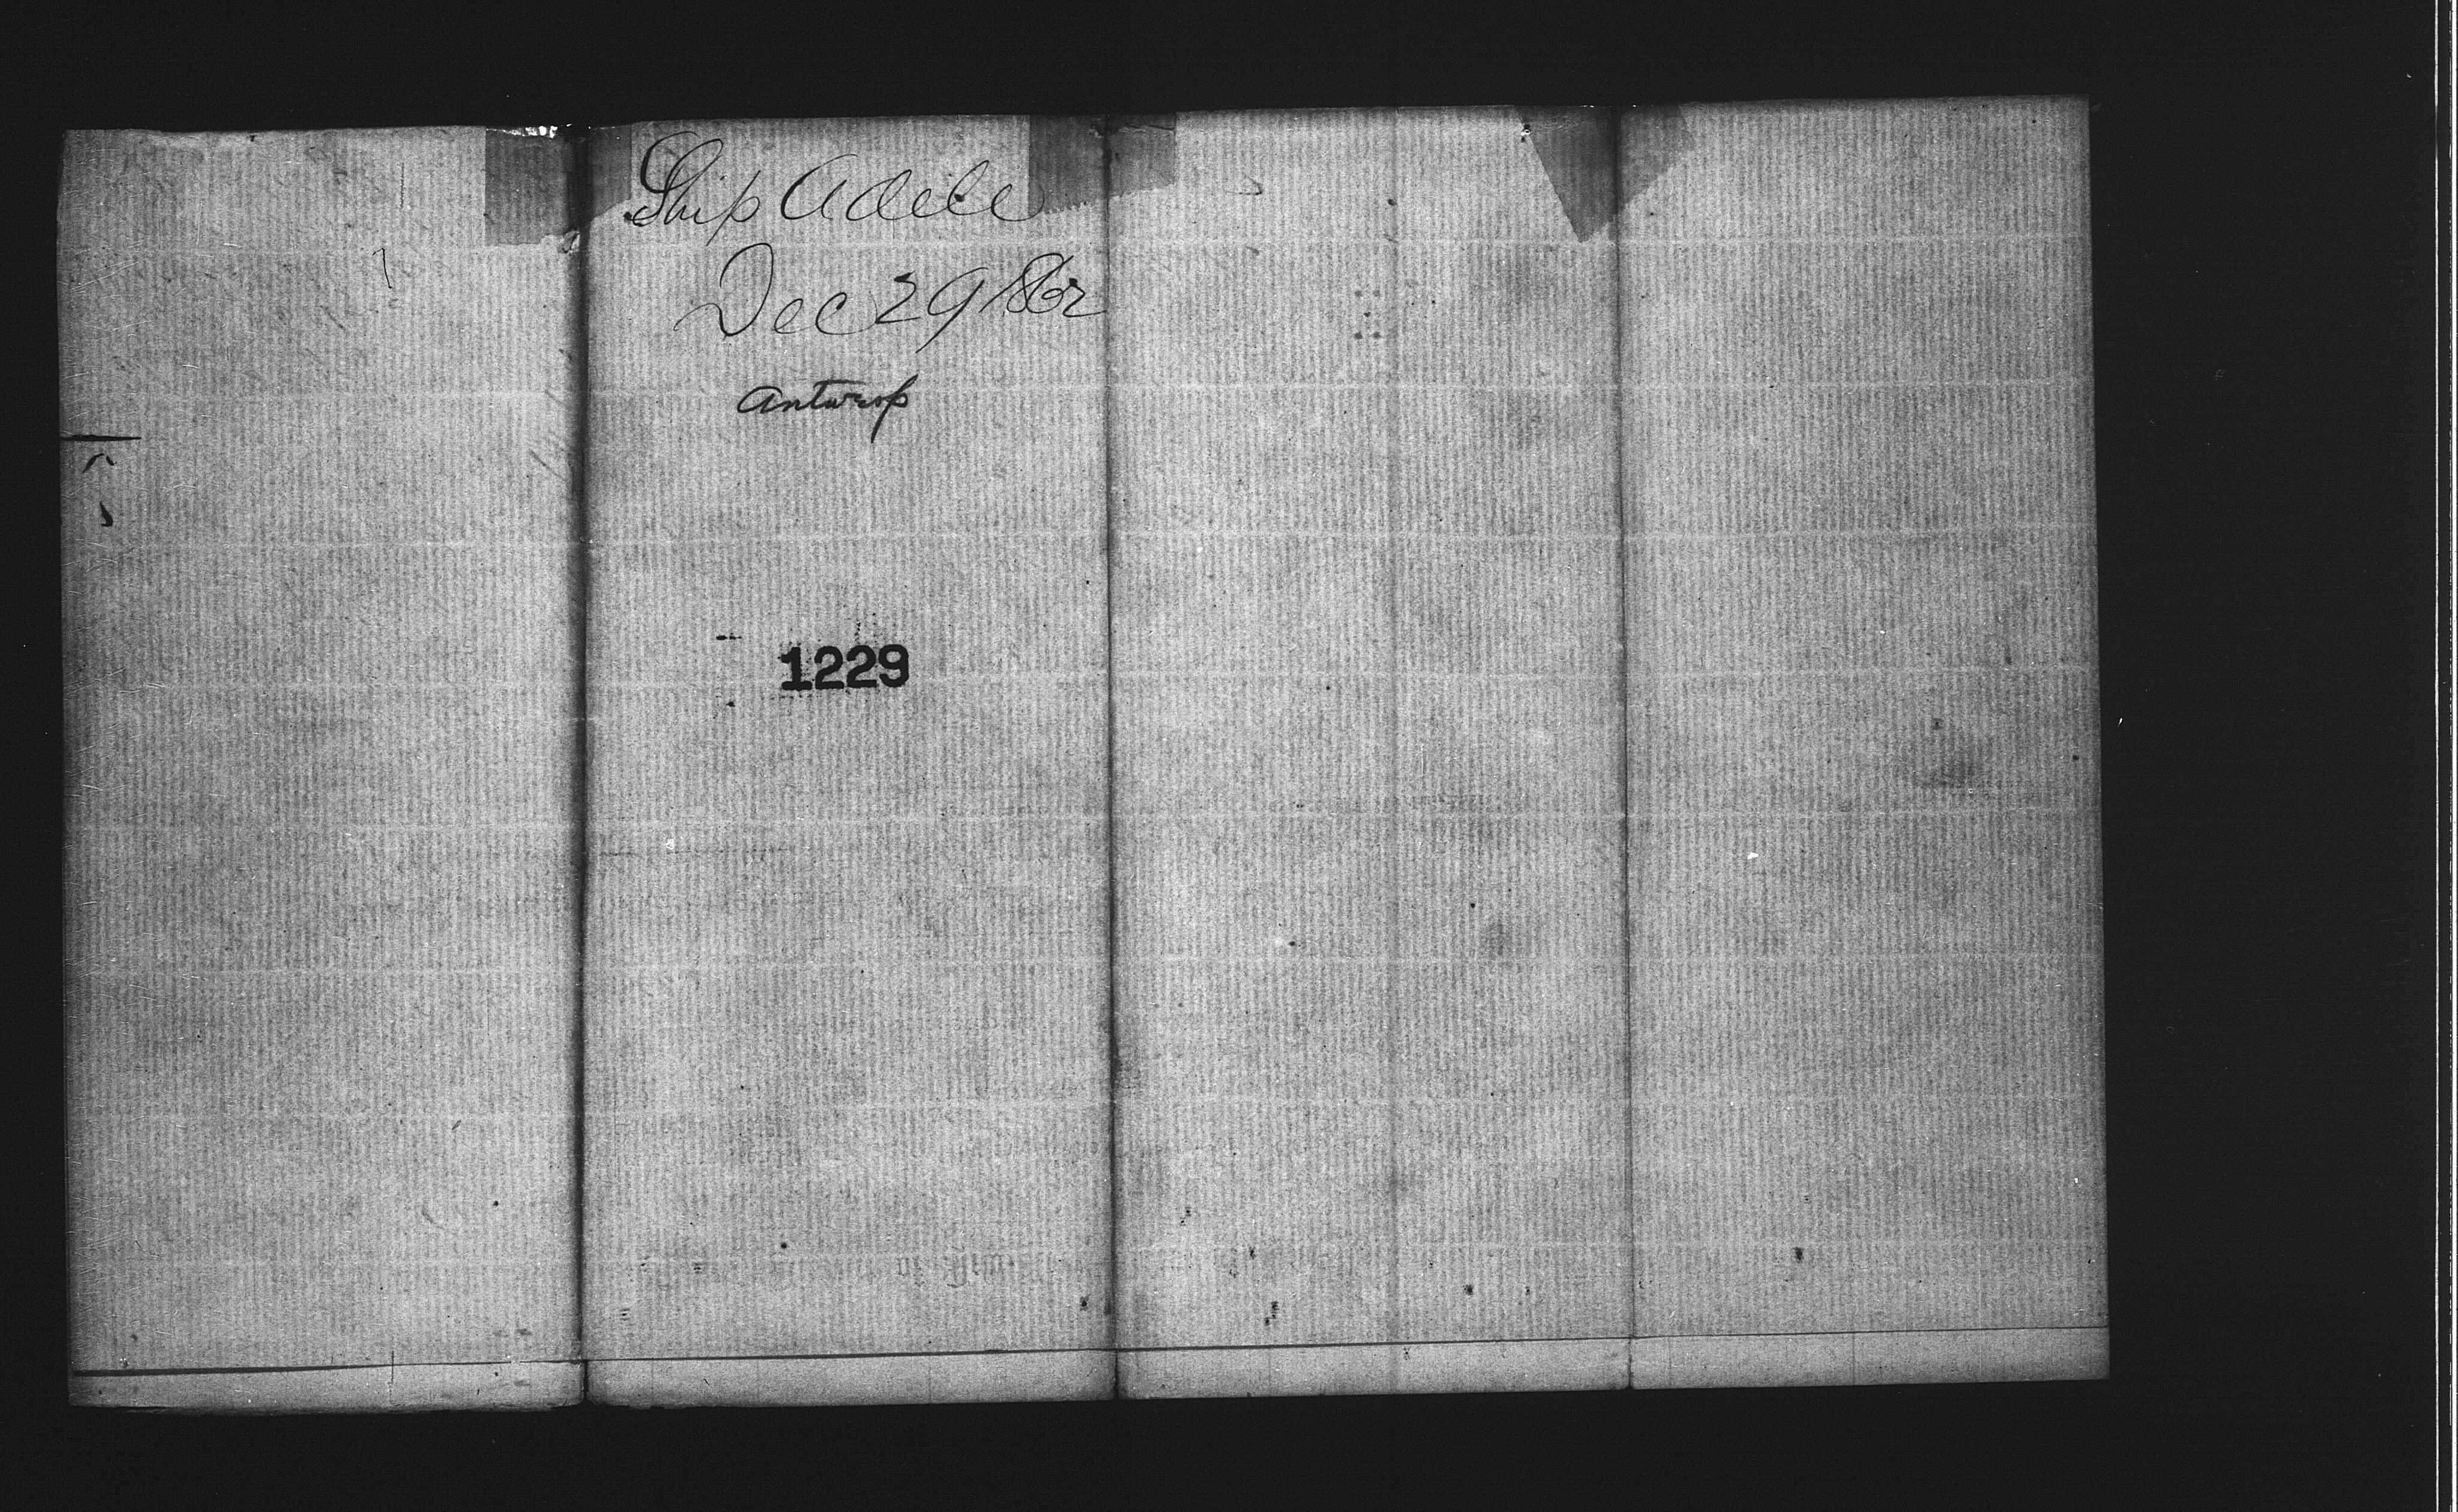 Ship Adele
Dec 29 1862
Antwrop
1229